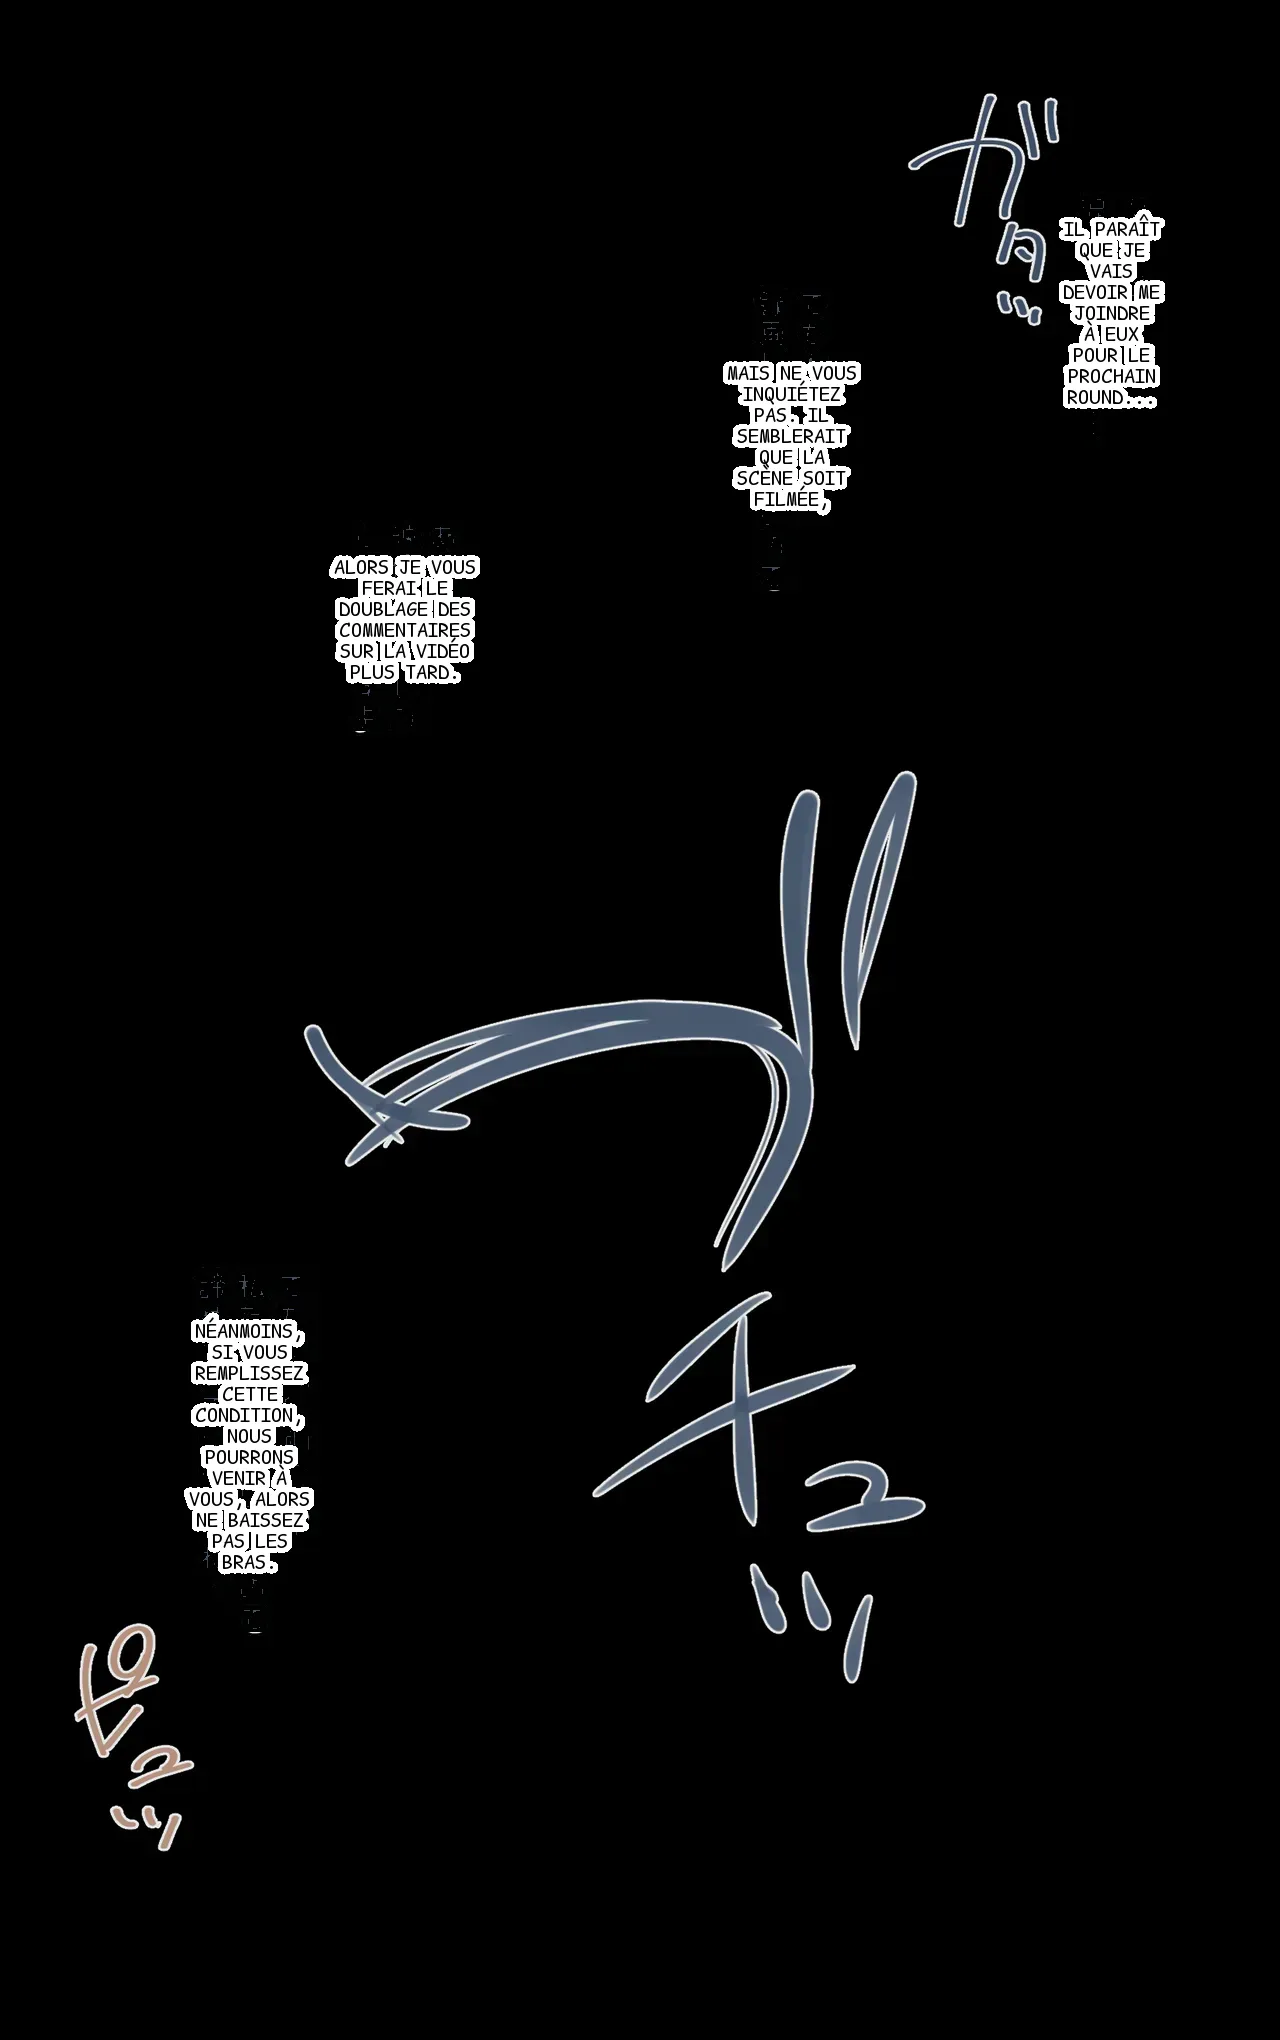 ガタッ
IL PARAÎT
QUE JE
VAIS
DEVOIR ME
JOINDRE
À EUX
POUR LE
PROCHAIN
ROUND...
MAIS NE VOUS
INQUIÉTEZ
PAS. IL
SEMBLERAIT
QUE LA
SCÈNE SOIT
FILMÉE,
ALORS JE VOUS
FERAI LE
DOUBLAGE DES
COMMENTAIRES
SUR LA VIDÉO
PLUS TARD.
NÉANMOINS,
SI VOUS
REMPLISSEZ
CETTE
CONDITION,
NOUS
POURRONS
VENIR À
VOUS, ALORS
NE BAISSEZ
PAS LES
BRAS.